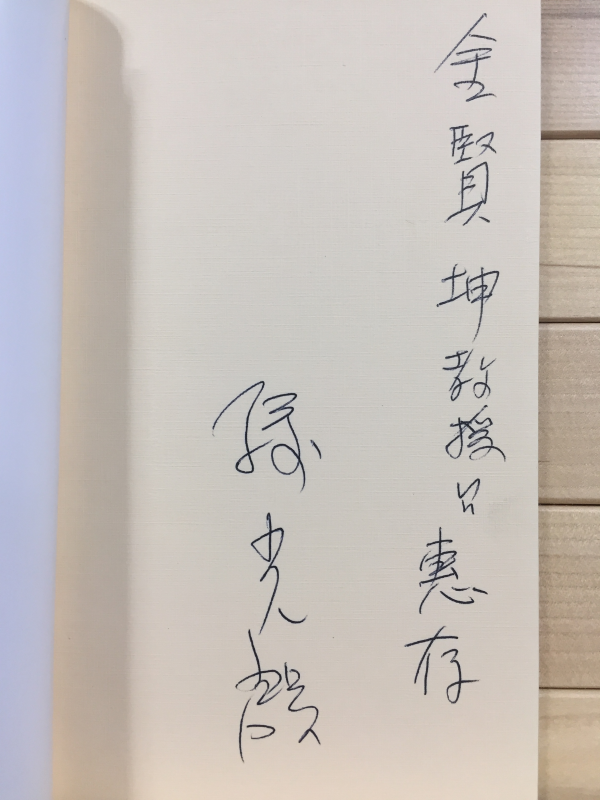 金賢坤教授惠存
孫光